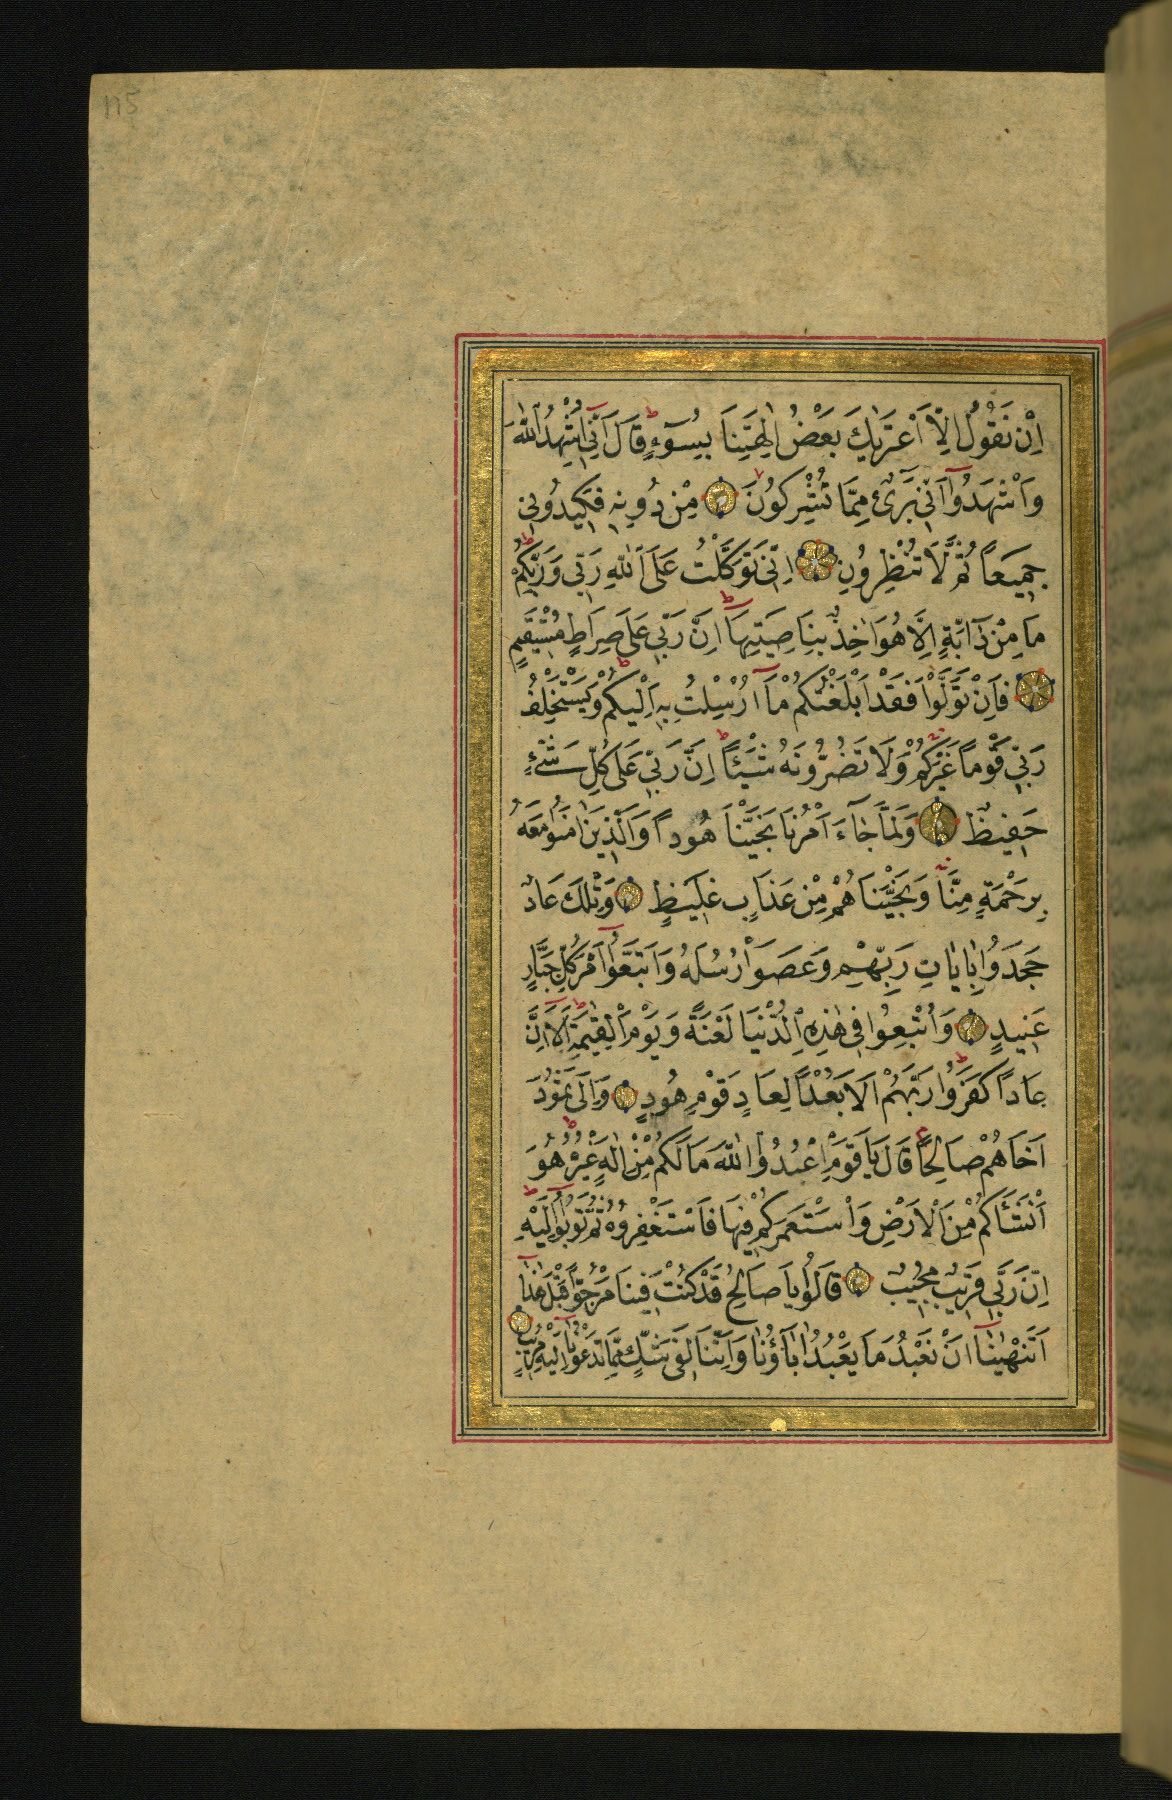 115
اِنْ نَقُولُ اِلَّا اعْتَرٰيكَ بَعْضُ اٰلِهَتِنَا بِسُوٓءٍ ط قَالَ اِنِّٓى اُشْهِدُ اللّٰهَ
وَاشْهَدُٓوا اَنِّى بَرِٓىءٌ مِمَّا تُشْرِكُونَ مِنْ دُونِهٖ فَكِيدُونِى
جَمِيعًا ثُمَّ لَا تُنْظِرُونِ اِنِّى تَوَكَّلْتُ عَلَى اللّٰهِ رَبِّى وَرَبِّكُمْ ط
مَا مِنْ دَٓابَّةٍ اِلَّا هُوَ اٰخِذٌ بِنَاصِيَتِهَا ط اِنَّ رَبِّى عَلٰى صِرَاطٍ مُسْتَقِيمٍ
فَاِنْ تَوَلَّوْا فَقَدْ اَبْلَغْتُكُمْ مَٓا اُرْسِلْتُ بِهٖٓ اِلَيْكُمْ ط وَيَسْتَخْلِفُ
رَبِّى قَوْمًا غَيْرَكُمْ وَلَا تَضُرُّونَهُ شَيْئًا ط اِنَّ رَبِّى عَلٰى كُلِّ شَىْءٍ
حَفِيظٌ وَلَمَّا جَٓاءَ اَمْرُنَا نَجَّيْنَا هُودًا وَالَّذِينَ اٰمَنُوا مَعَهُ
بِرَحْمَةٍ مِنَّا وَنَجَّيْنَاهُمْ مِنْ عَذَابٍ غَلِيظٍ وَتِلْكَ عَادٌ
جَحَدُوا بِاٰيَاتِ رَبِّهِمْ وَعَصَوْا رُسُلَهُ وَاتَّبَعُٓوا اَمْرَ كُلِّ جَبَّارٍ
عَنِيدٍ وَاُتْبِعُوا فِى هٰذِهِ الدُّنْيَا لَعْنَةً وَيَوْمَ الْقِيٰمَةِ ط اَلَٓا اِنَّ
عَادًا كَفَرُوا رَبَّهُمْ ط اَلَا بُعْدًا لِعَادٍ قَوْمِ هُودٍ وَاِلٰى ثَمُودَ
اَخَاهُمْ صَالِحًا قَالَ يَا قَوْمِ اعْبُدُوا اللّٰهَ مَا لَكُمْ مِنْ اِلٰهٍ غَيْرُهُ ط هُوَ
اَنْشَاَكُمْ مِنَ الْاَرْضِ وَاسْتَعْمَرَكُمْ فِيهَا فَاسْتَغْفِرُوهُ ثُمَّ تُوبُٓوا اِلَيْهِ ط
اِنَّ رَبِّى قَرِيبٌ مُجِيبٌ قَالُوا يَا صَالِحُ قَدْ كُنْتَ فِينَا مَرْجُوًّا قَبْلَ هٰذَٓا
اَتَنْهٰينَٓا اَنْ نَعْبُدَ مَا يَعْبُدُ اٰبَٓاؤُنَا وَاِنَّنَا لَفِى شَكٍّ مِمَّا تَدْعُونَٓا اِلَيْهِ مُرِيبٍ